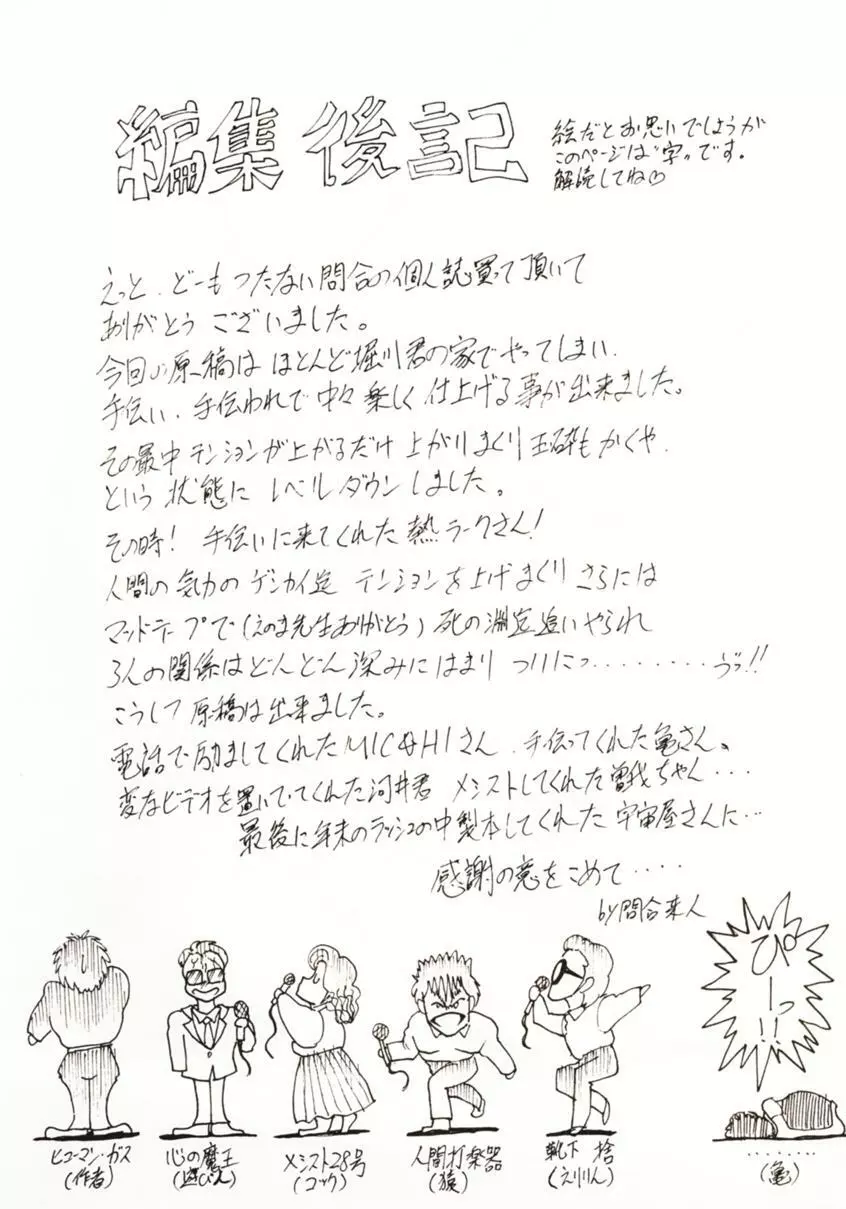 編集後記
絵だとお思いでしょうが
このページは“字”です。
解読してね♡
えっと、どーもつたない問合の個人誌買って頂いて
ありがとうございました。
今回の原稿はほとんど堀川君の家でやってしまい、
手伝い、手伝われで中々楽しく仕上げる事が出来ました。
その最中テンションが上がるだけ上がりまくり玉砕もかくや、
という状態にレベルダウンしました。
その時！手伝いに来てくれた熱ラークさん！
人間の気力のゲンカイ迄テンションを上げまくりさらには
マッドテープで（えのま先生ありがとう）死の淵迄追いやられ
3人の関係はどんどん深みにはまりついにっ‥‥‥‥‥ゔっ!!
こうして原稿は出来ました。
電話で励ましてくれたMICHIさん、手伝ってくれた亀さん、
変なビデオを置いてってくれた河井君 メシストしてくれた曽我ちゃん‥‥
最後に年末のラッシュの中製本してくれた宇宙屋さんに‥‥
感謝の意をこめて‥‥‥
by問合来人
ぴーっ!!
ヒューマン・ガス
(作者)
心の魔王
(遊びん)
メシスト28号
(コック)
人間打楽器
(猿)
靴下 捨
(えりりん)
‥‥‥‥
(亀)